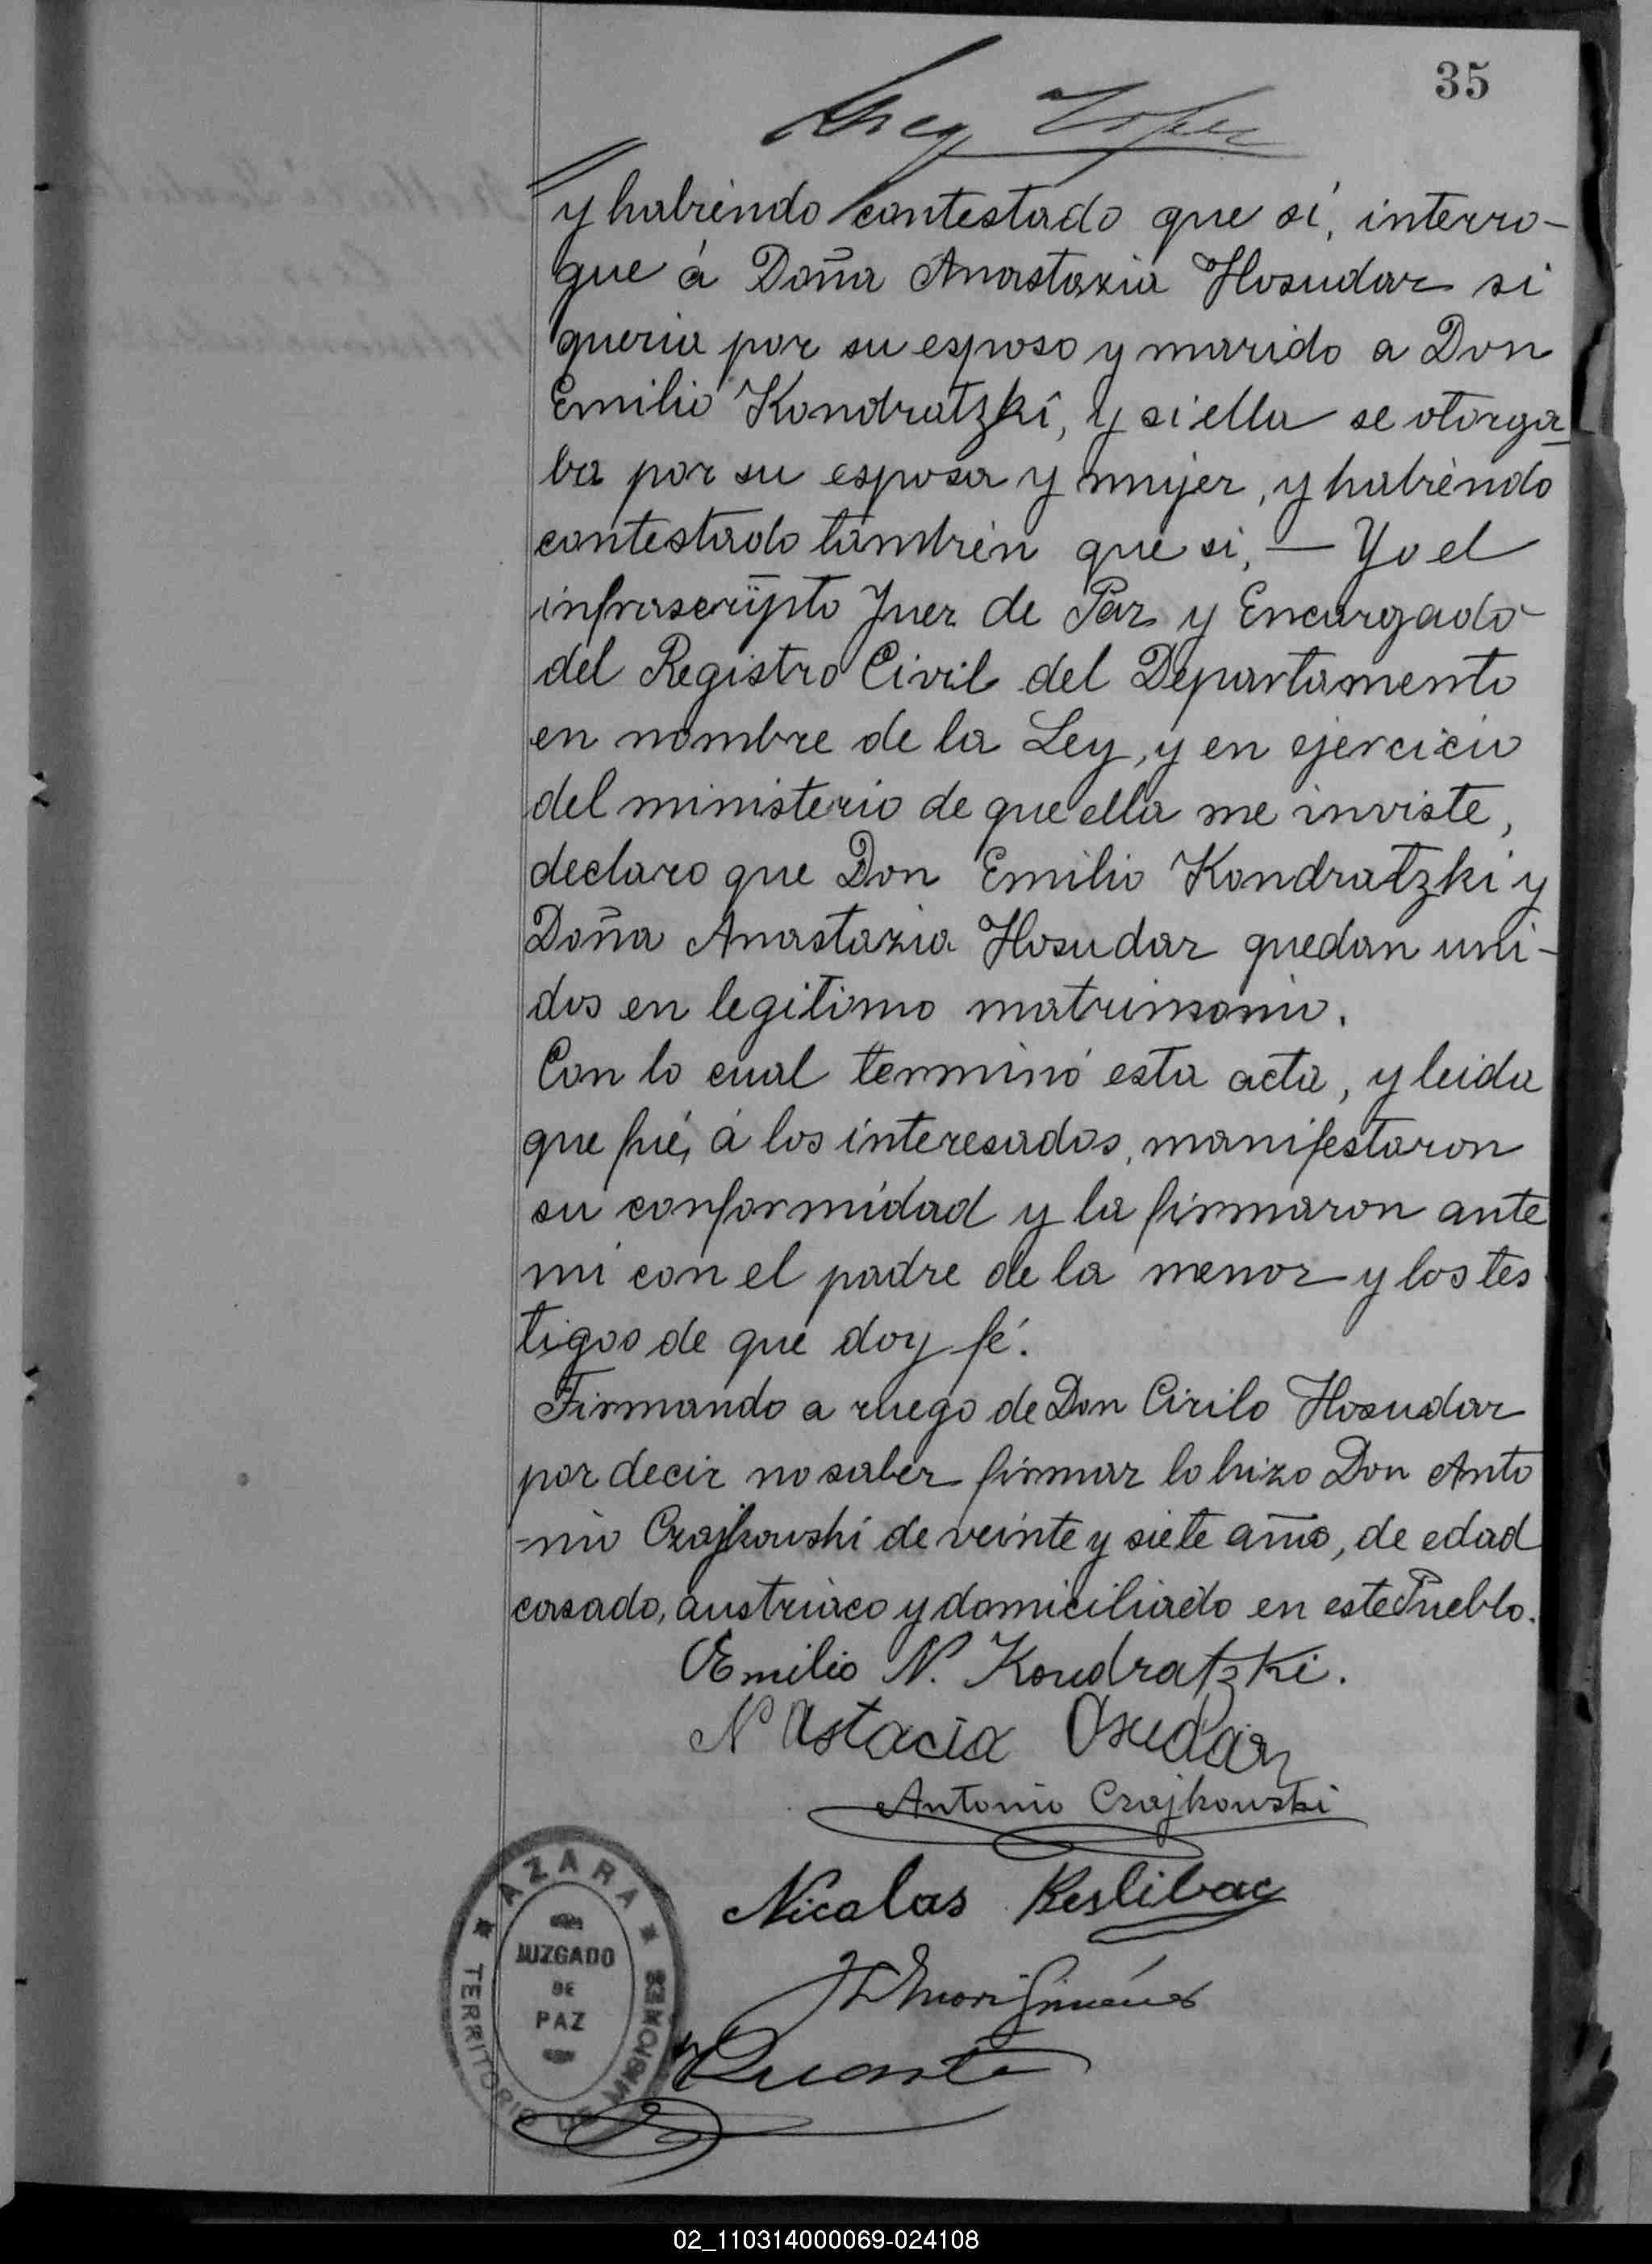 35
y habiendo contestado que sí, interro-
gue á Doña Anastazia Hosudar si
queria por su esposo y marido a Don
Emilio Kondratzki, y si ella se otorga
ba por su esposa y mujer, y habiendo
contestado tambien que si, — Yo el
infrascripto Juez de Paz y Encargado
del Registro Civil del Departamento
en nombre de la Ley, y en ejercicio
del ministerio de que ella me inviste,
declaro que Don Emilio Kondratzki y
Doña Anastazia Hosudar quedan uni-
dos en legitimo matrimonio.
Con lo cual terminó esta acta, y leida
que fué, á los interesados, manifestaron
su conformidad y la firmaron ante
mi con el padre de la menor y los tes
tigos de que doy fé.
Firmando a ruego de Don Cirilo Hosudar
por decir no saber firmar lo hizo Don Anto
-nio Czajkowski de veinte y siete años, de edad
casado, austriaco y domiciliado en este Pueblo.
Emilio N. Kondratzki.
Nastacia Osudar
Antonio Czajkowski
Nicolas
AZARA
JUZGADO
DE
PAZ
TERRITORIO DE MISIONES
02_110314000069-024108